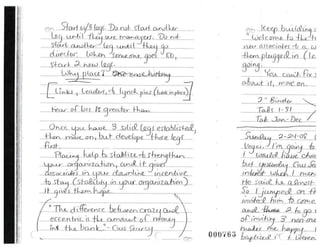 Start w/3 legs. Do not start another
leg until they are manager. Do not
start another leg until they go
director. When someone goes ED,
start 2 new legs.
Why place?
Links, Leaders, & lynch pins
Fear of loss is greater than
Once you have 3 solid legs established,
then move on, but develop those legs
first.
Placing help to stabilize & strengthen
your organization, and it gives
associates in your downline incentive
to stay (stability in your organization).
It gives them hope.
"The difference between crazy and
eccentric is the amount of money
in the bank." -
Keep building
Welcome to the
new associates to a
them plugged in
going.
You can't fix
about it, move on.
2" Binder
Tabs 1-31
Tab Jan-Dec
Sunday 2-24-08
Vegas. I'm going to
I would have
but yesterday.
interest when I
He said he
So I jumped on
invited him to come
and 2 to go
of inviting 3
makes me happy. I
baptized
000763